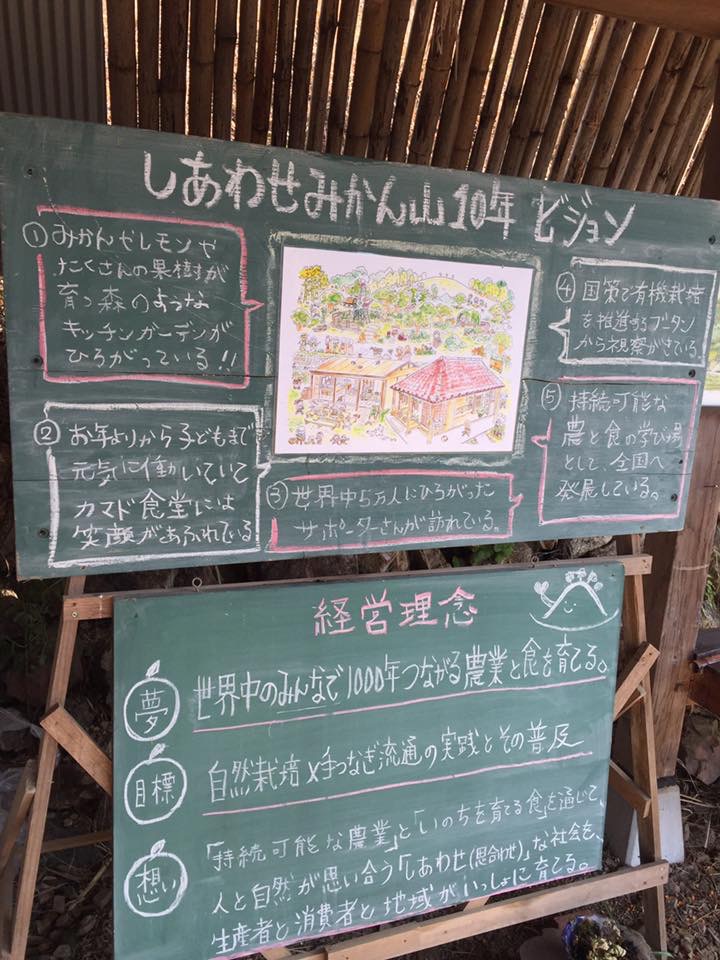 しあわせみかん山10年ビジョン
① みかんゼレモンや
たくさんの果樹が
育つ森のような
キッチンガーデンが
ひろがっている!!
② お年よりから子どもまで
元気に働いていて
カマド食堂には
笑顔があふれている
③ 世界中5万人にひろがった
サポーターさんが訪れている。
④ 国策で有機栽培
を推進するブータン
から視察がきている。
⑤ 持続可能な
農と食の学び場
として、全国へ
発展している。
経営理念
夢 世界中のみんなで1000年つながる農業と食を育てる。
目標 自然栽培×手つなぎ流通の実践とその普及
想い 「持続可能な農業」と「いのちを育てる食」を通じて、
人と自然が思い合う「しあわせ(思合わせ)」な社会を、
生産者と消費者と地域がいっしょに育てる。